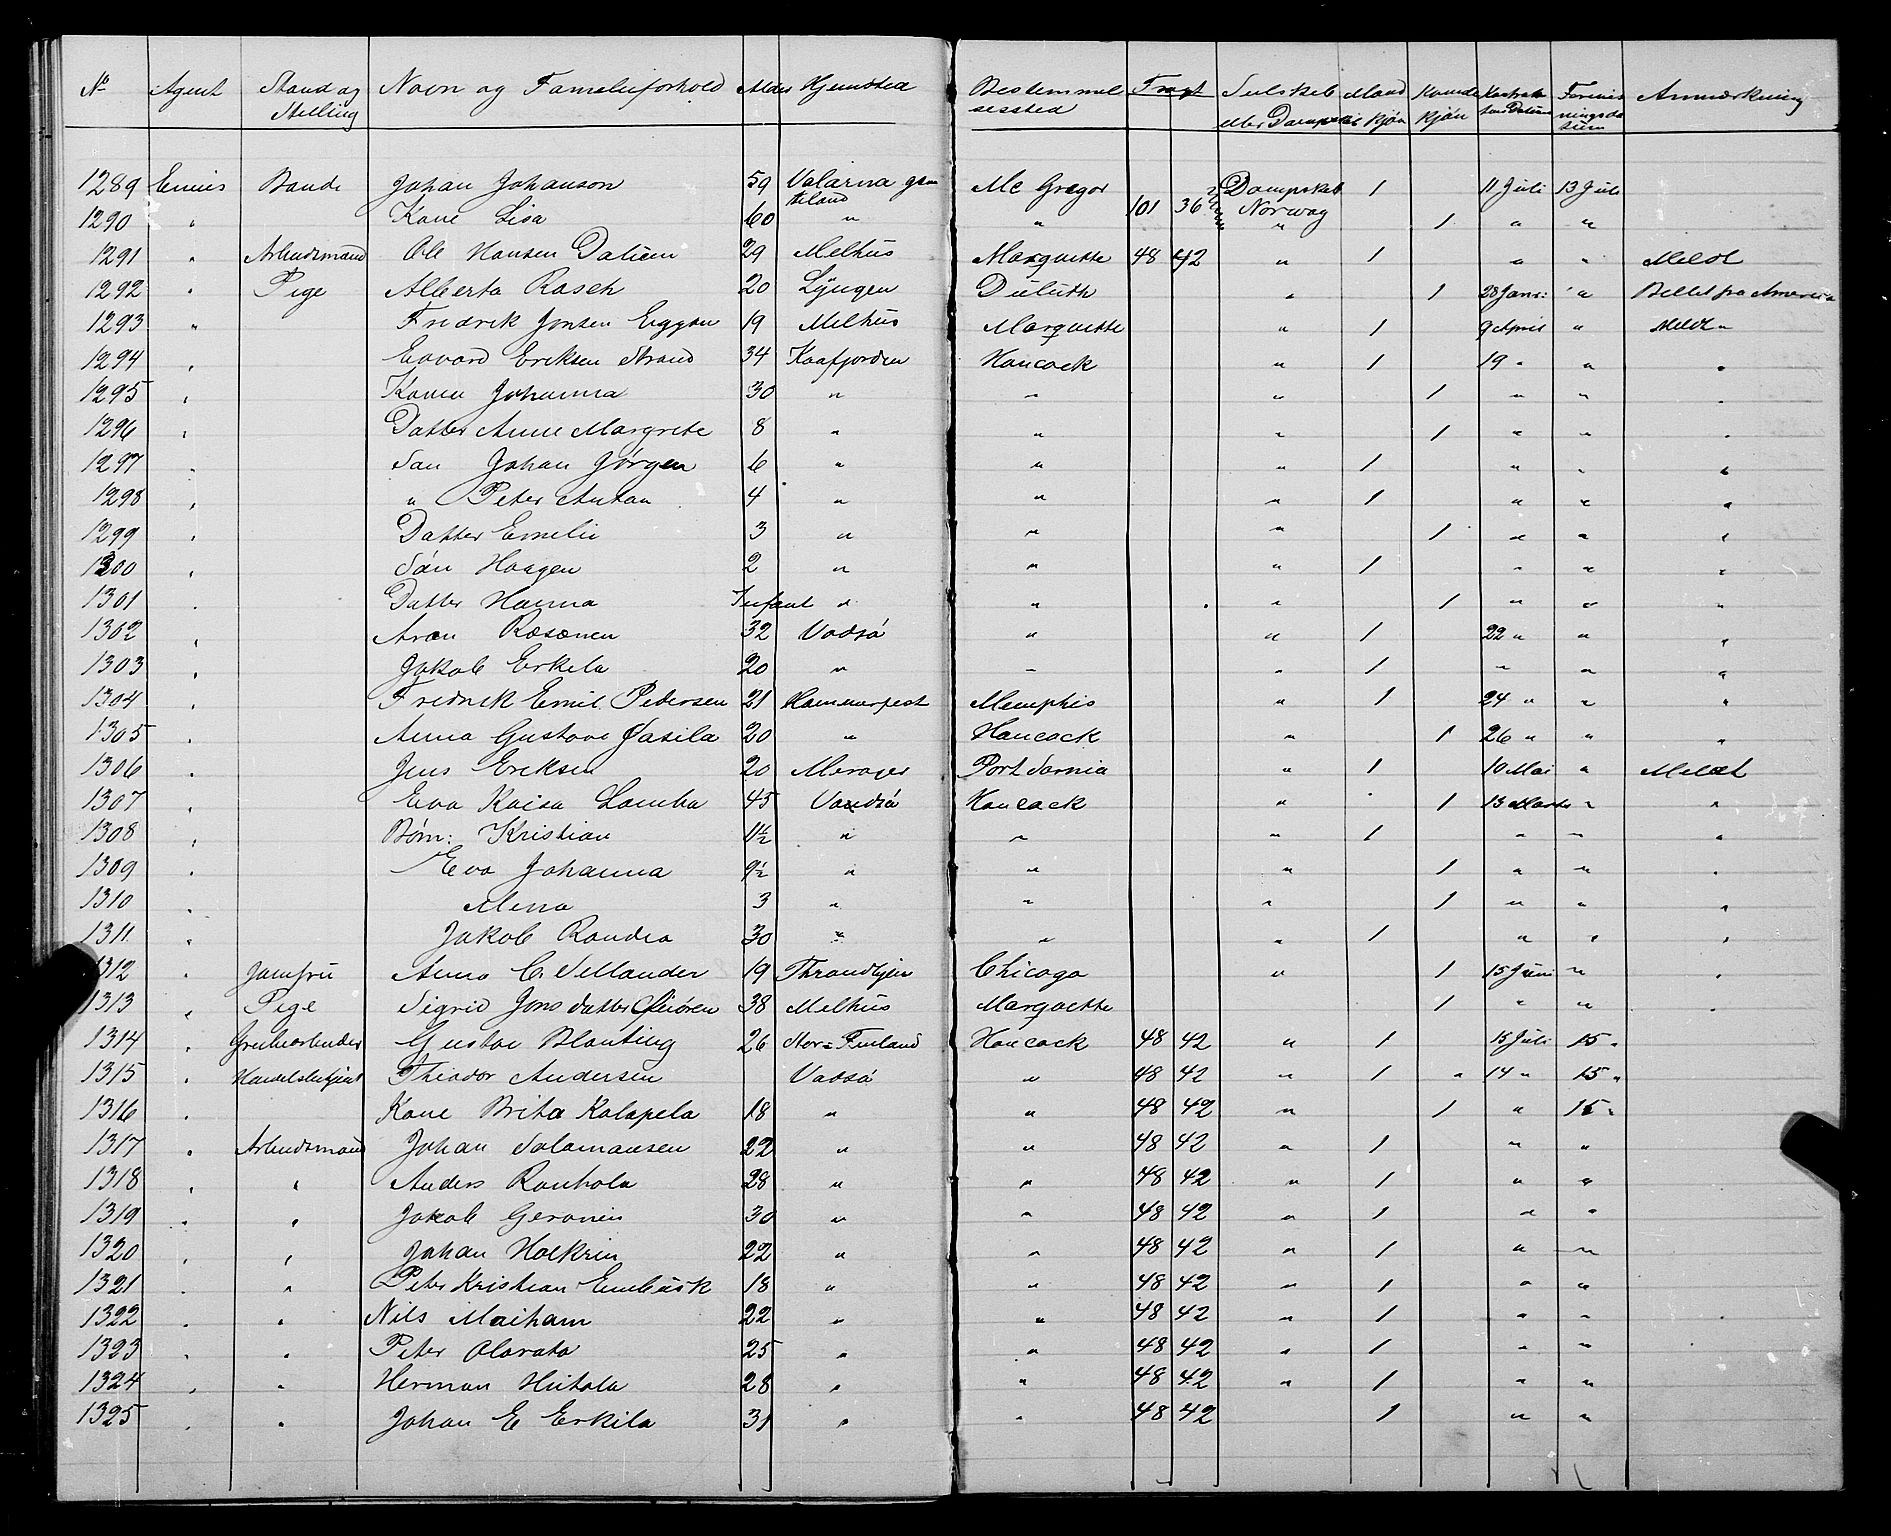 No Agent Stand og Stilling Navn og Familieforhold Alder Hjemsted Bestemmelsessted Fragt Selskab eller Dampskib Mand kjøn Kvinde kjøn Kontraktens Datum Forevisningsdatum Anmærkning
1289 Ennis Bonde Johan Johanson 59 Mc Gregor Dampskib 1 11 Juli 13 Juli
1290 " Kone Lisa 60 " " 101 36 Norway " 1 " "
1291 " Arbeidsmand Ole Hansen Dalum 29 Melhus Marquette 48 42 " 1 " " Meldt
1292 " Pige Alberta Rasch 20 Lyngen Duluth " 1 28 Jan: " Billet fra Amerika
1293 " Fredrik Jonsen Eggen 19 Melhus Marquette " 1 9 April " Meldt "
1294 " Edvard Eriksen Strand 34 Kaafjorden Hancock " 1 19 " " "
1295 " Kone Johanna 30 " " " 1 " " "
1296 " Datter Anne Margrete 8 " " " 1 " " "
1297 " Søn Johan Jørgen 6 " " " 1 " " "
1298 " " Peter Anton 4 " " " 1 " " "
1299 " Datter Emelie 3 " " " 1 " " "
1300 " Søn Haagen 2 " " " 1 " " "
1301 " Datter Hanna Infant " " " 1 " " "
1302 " Aron Räsänen 32 Vadsø " " 1 22 " " "
1303 " Jakob Erkela 20 " " " 1 " " "
1304 " Fredrik Emil Pedersen 21 Hammerfest Memphis " 1 24 " " "
1305 " Anna Gustava 20 " Hancock " 1 26 " " "
1306 " Jens Eriksen 20 Meraker Port Sarnia " 1 10 Mai " Meldt
1307 " Eva Kaisa Lamba 45 Vandsø Hancock " 1 13 Marts " "
1308 " Børn: Kristian 11½ " " " 1 " " "
1309 " Eva Johanna 9½ " " " 1 " " "
1310 " Mena 3 " " " 1 " " "
1311 " Jakob Randea 30 " " " 1 " " "
1312 " Jomfru Anna C. Sellander 19 Throndhjem Chicago " 1 15 Juni " "
1313 " Pige Sigrid Jonsdatter 38 Melhus Marquette 1 " " "
1314 " Grubearbeider Gustav Blanting 26 Nor= Finland Hancock 48 42 " 1 15 Juli 15 "
1315 " Handelsbetjent Theodor Andersen Vadsø " 48 42 " 1 " 14 " 15 "
1316 " Kone Brita Kalapela 18 " " 48 42 " 1 " 15 "
1317 " Arbeidsmand Johan Salamansen 22 " " 48 42 " 1 " "
1318 " " Anders Ranhola 28 " " 48 42 " 1 " "
1319 " " Jakob Geranen 30 " " 48 42 " 1 " "
1320 " " Johan Holkrin 22 " " 48 42 " 1 " "
1321 " " Peter Kristian Embusk 18 " " 48 42 " 1 " "
1322 " " Nils Maiham 22 " " 48 42 " 1 " "
1323 " " Peter Alavata 25 " " 48 42 " 1 " "
1324 " " Herman Hietala 28 " " 48 42 " 1 " "
1325 " " Johan E Erkila 31 " " 48 42 1 " "